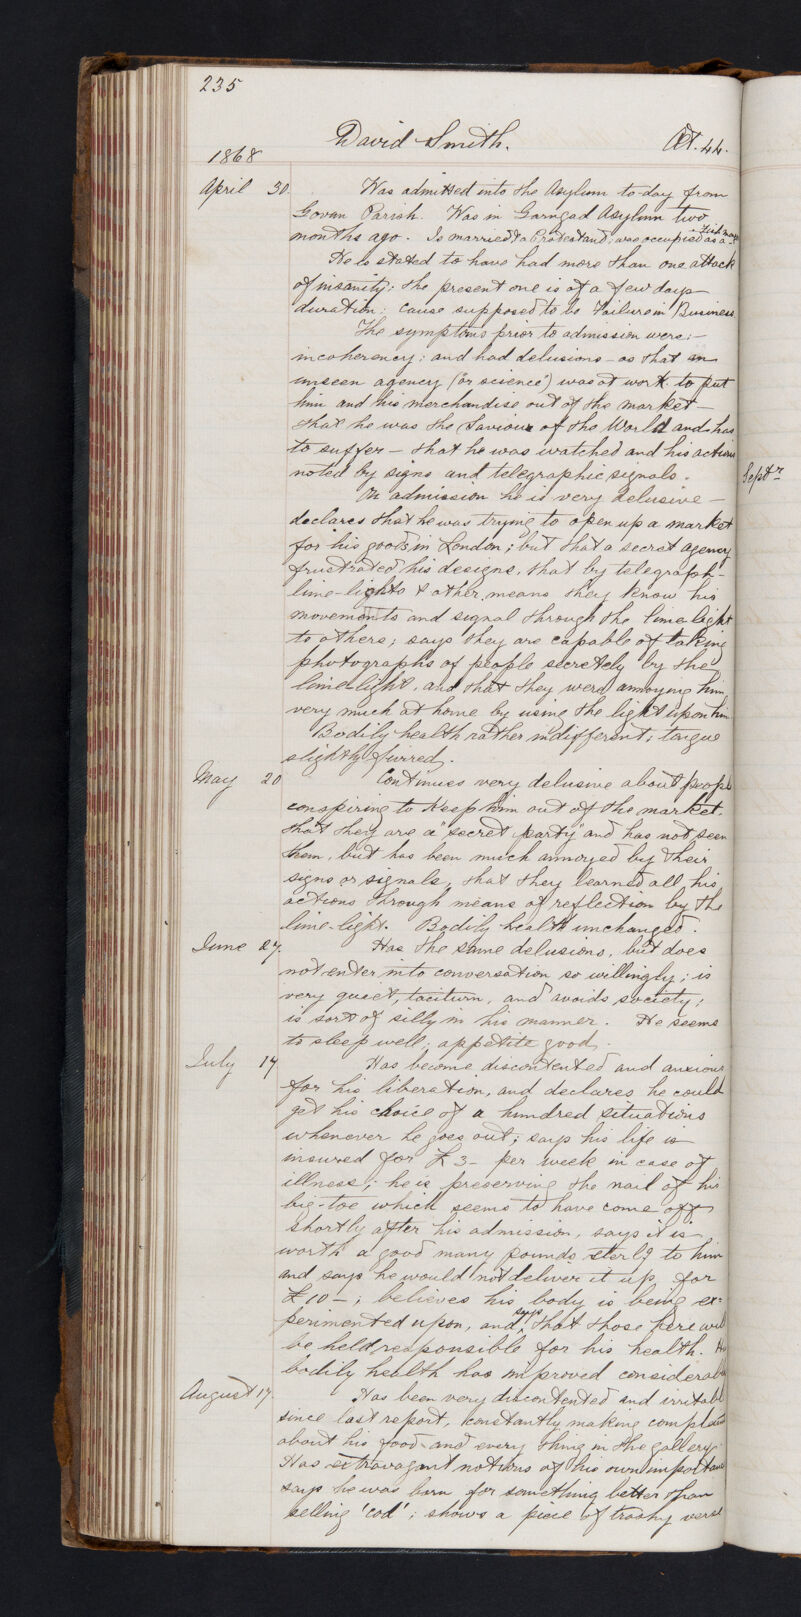 235
David Smith. Æt. 44.
1868
April 30. Was admitted into the Asylum to-day from
Govan Parish. Was in Garngad Asylum two
months ago. Is married & a Protestant; was occupied as a Fish
He is stated to have had more than one attack
of insanity; the present one is of a few days
duration; cause supposed to be Failure in Business
The symptoms prior to admission were:—
incoherency; and had delusions – as that an
unseen agency ("or science") was at work to put
him and his merchandise out of the market –
that he was the Saviour of the World and has
to suffer – that he was watched and his actions
noted by signs and telegraphic signals.
On admission he is very delusive –
declares that he was trying to open up a market
for his goods in London; but that a secret agency
frustrated his designs, that by telegraph –
lime-lights & other means they know his
movements and signal through the lime light
to others; says they are capable of taking
photographs of people secretely by the
lime-light, and that they were annoying him
very much at home by using the light upon him
Bodily health rather indifferent; tongue
slightly furred.
May 20 Continues very delusive about people
conspiring to keep him out of the market.
that they are a "secret party" and has not seen
them, but has been much annoyed by their
signs or signals, that they learned all his
actions through means of reflection by the
lime-light. Bodily health unchanged.
June 27. Has the same delusions, but does
not enter into conversation so willingly; is
very quiet, taciturn, and avoids society;
is sort of silly in his manner. He seems
to sleep well; appetite good.
July 17 Has become discontented and anxious
for his liberation, and declares he could
get his choice of a hundred situations
whenever he goes out; says his life is
insured for £3– per week in case of
illness; he is preserving the nail of his
big-toe which seems to have come off
shortly after his admission, says it is
worth a good many pounds sterlg to him
and says he would not deliver it up for
£10–; believes his body is being ex=
perimented upon, and says that those here will
be held responsible for his health. His
bodily health has improved considerably
August 17. Has been very discontented and irritable
since last report, constantly making complaints
about his food and every thing in the gallery.
Has extravagant notions of his own importance
says he was born for something better than
selling 'cod'; shows a piece of trashy verse
Septr